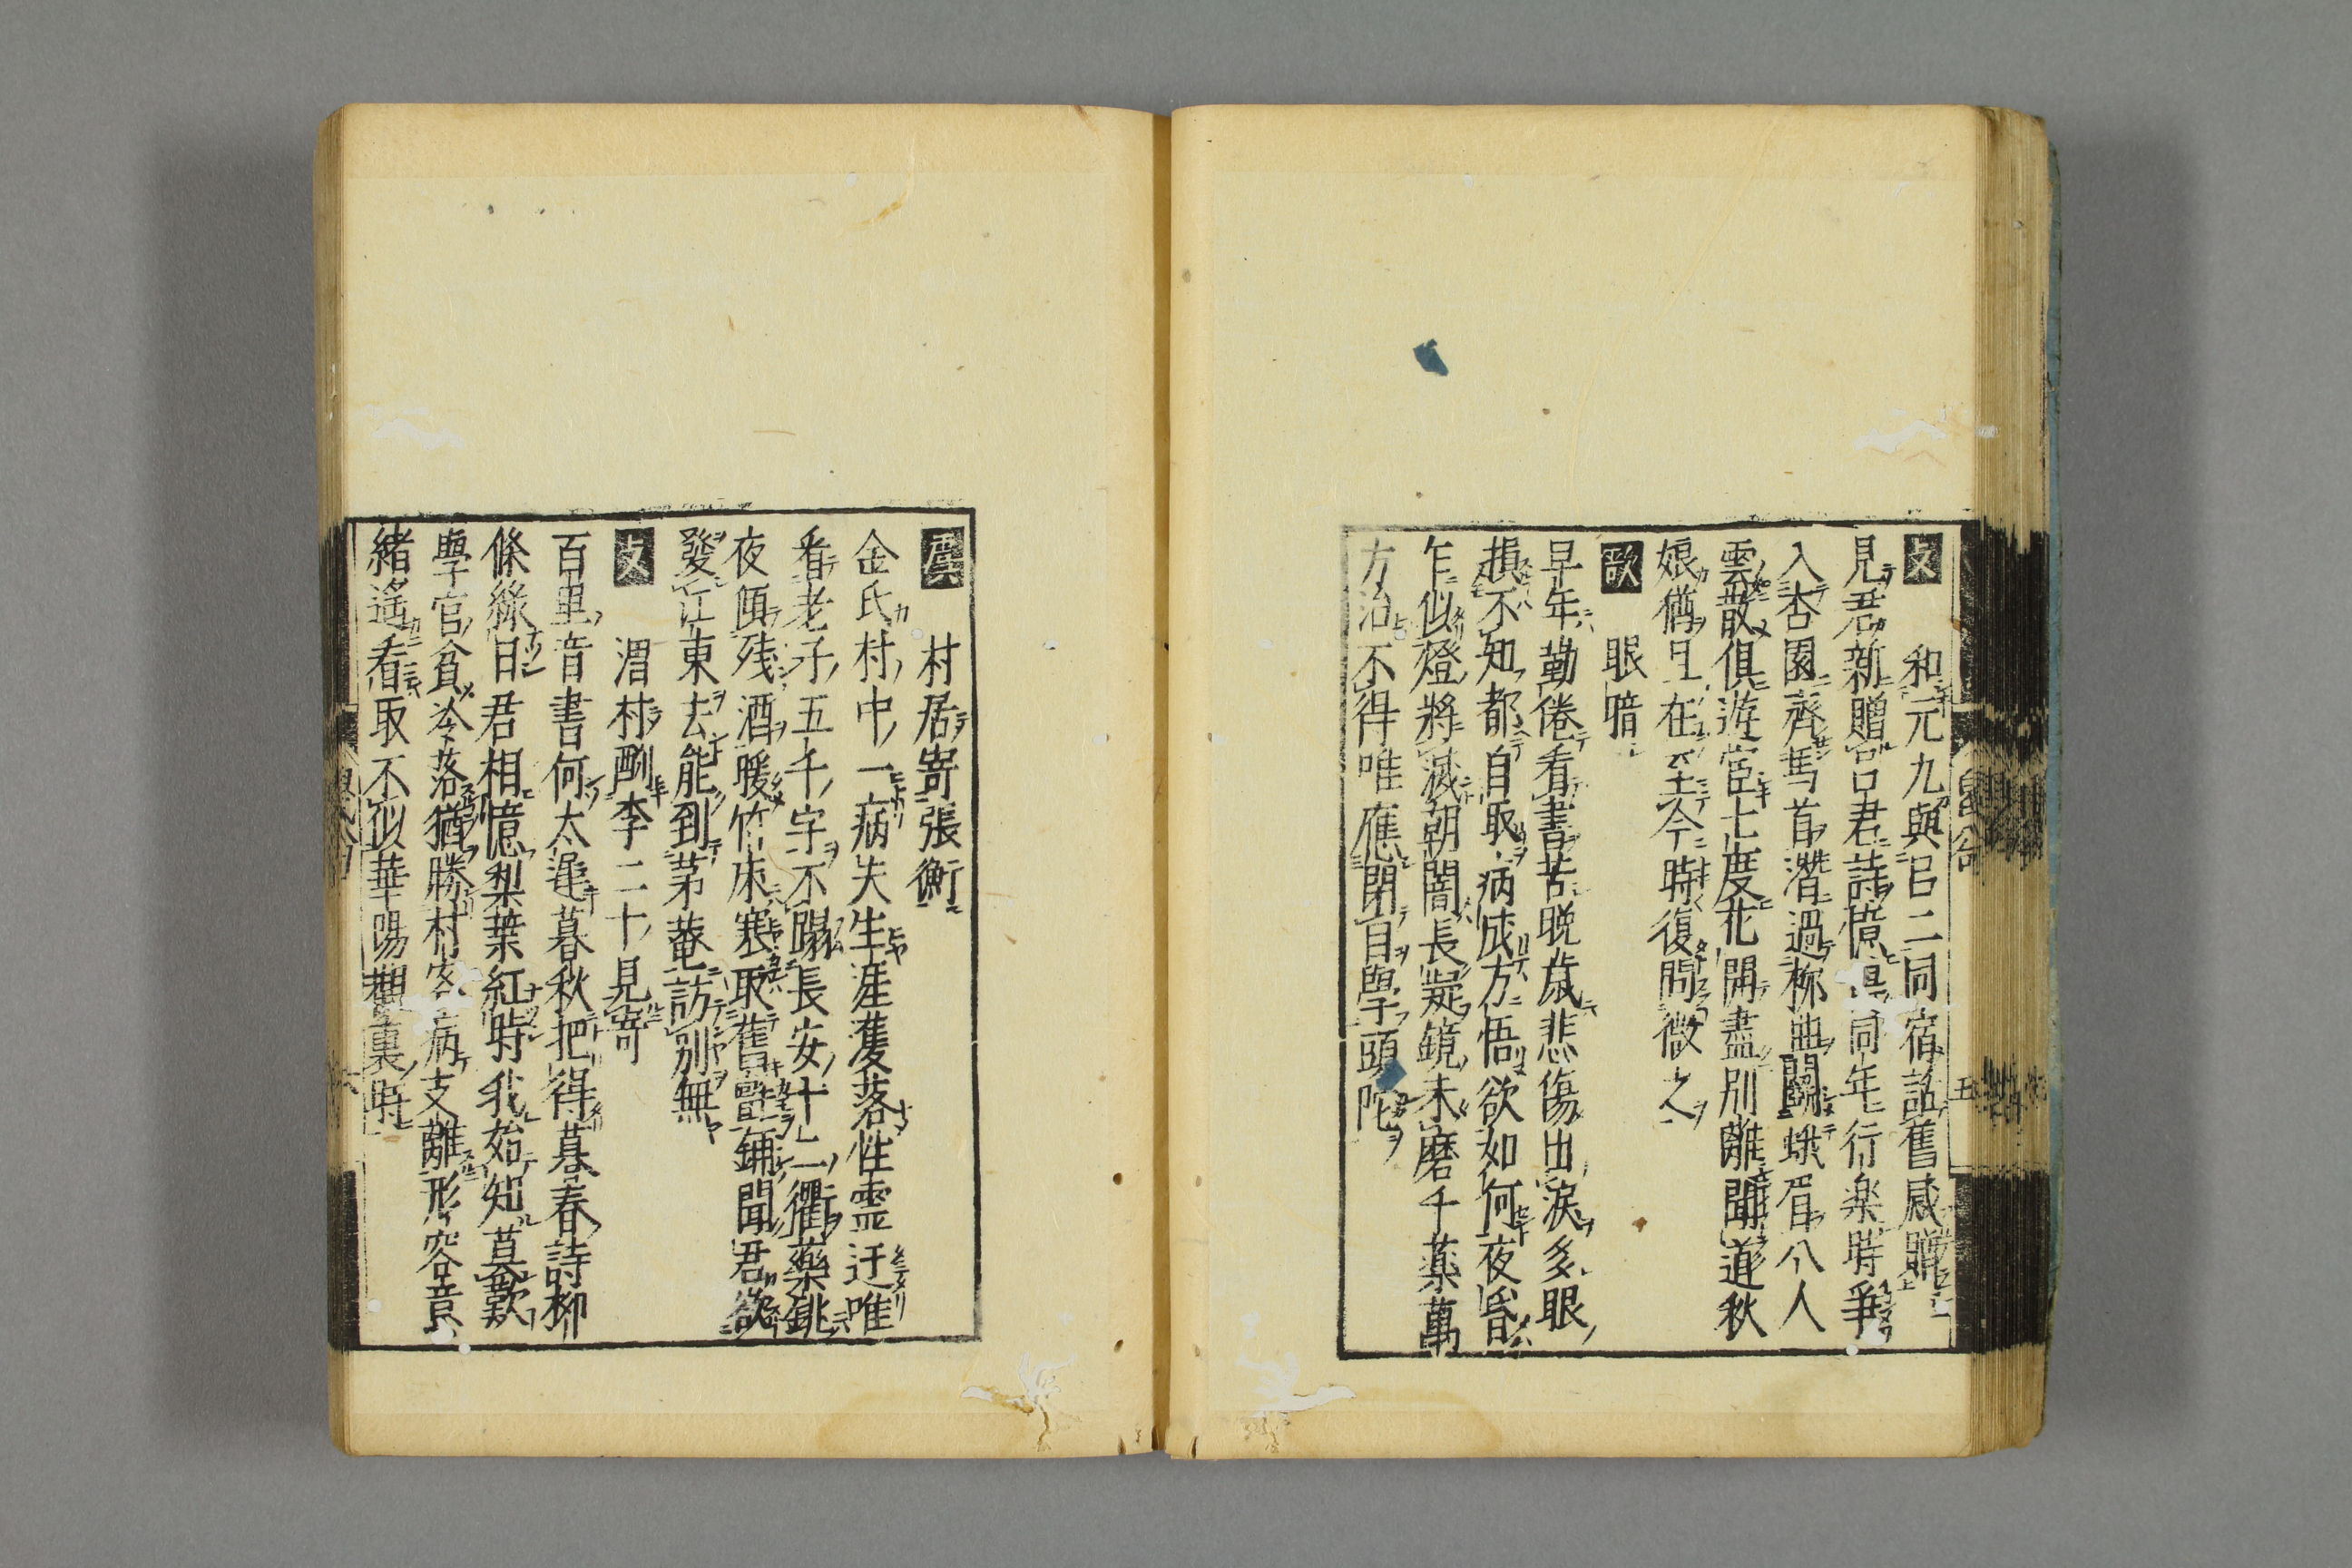 支 和元九與呂二同宿話舊感贈
見君新贈呂君詩憶得同年行楽時爭
入杏園齊馬首潜過柳曲闘蛾眉八人
雲散俱遊宦七度花開盡別離聞道秋
娘猶且在至今時復問微之
歌 眼暗
早年勤倦看書苦晩歳悲傷出涙多眼
損不知都自取病成方悟欲如何夜昏
乍似燈將滅朝闇長疑鏡未磨千薬萬
方治不得唯應閉目學頭陀
虞 村居寄張衡
金氏村中一病夫生涯濩落性霊迂唯
看老子五千字不蹋長安十二衢藥銚
夜傾残酒暖竹床寒取舊氈鋪聞君欲
發江東去能到茅菴訪別無
支 渭村酬李二十見寄
百里音書何太遅暮秋把得暮春詩柳
條綠日君相憶梨葉紅時我始知莫歎
學官貧冷落猶勝村客病支離形容意
緒遙看取不似華陽觀裏時